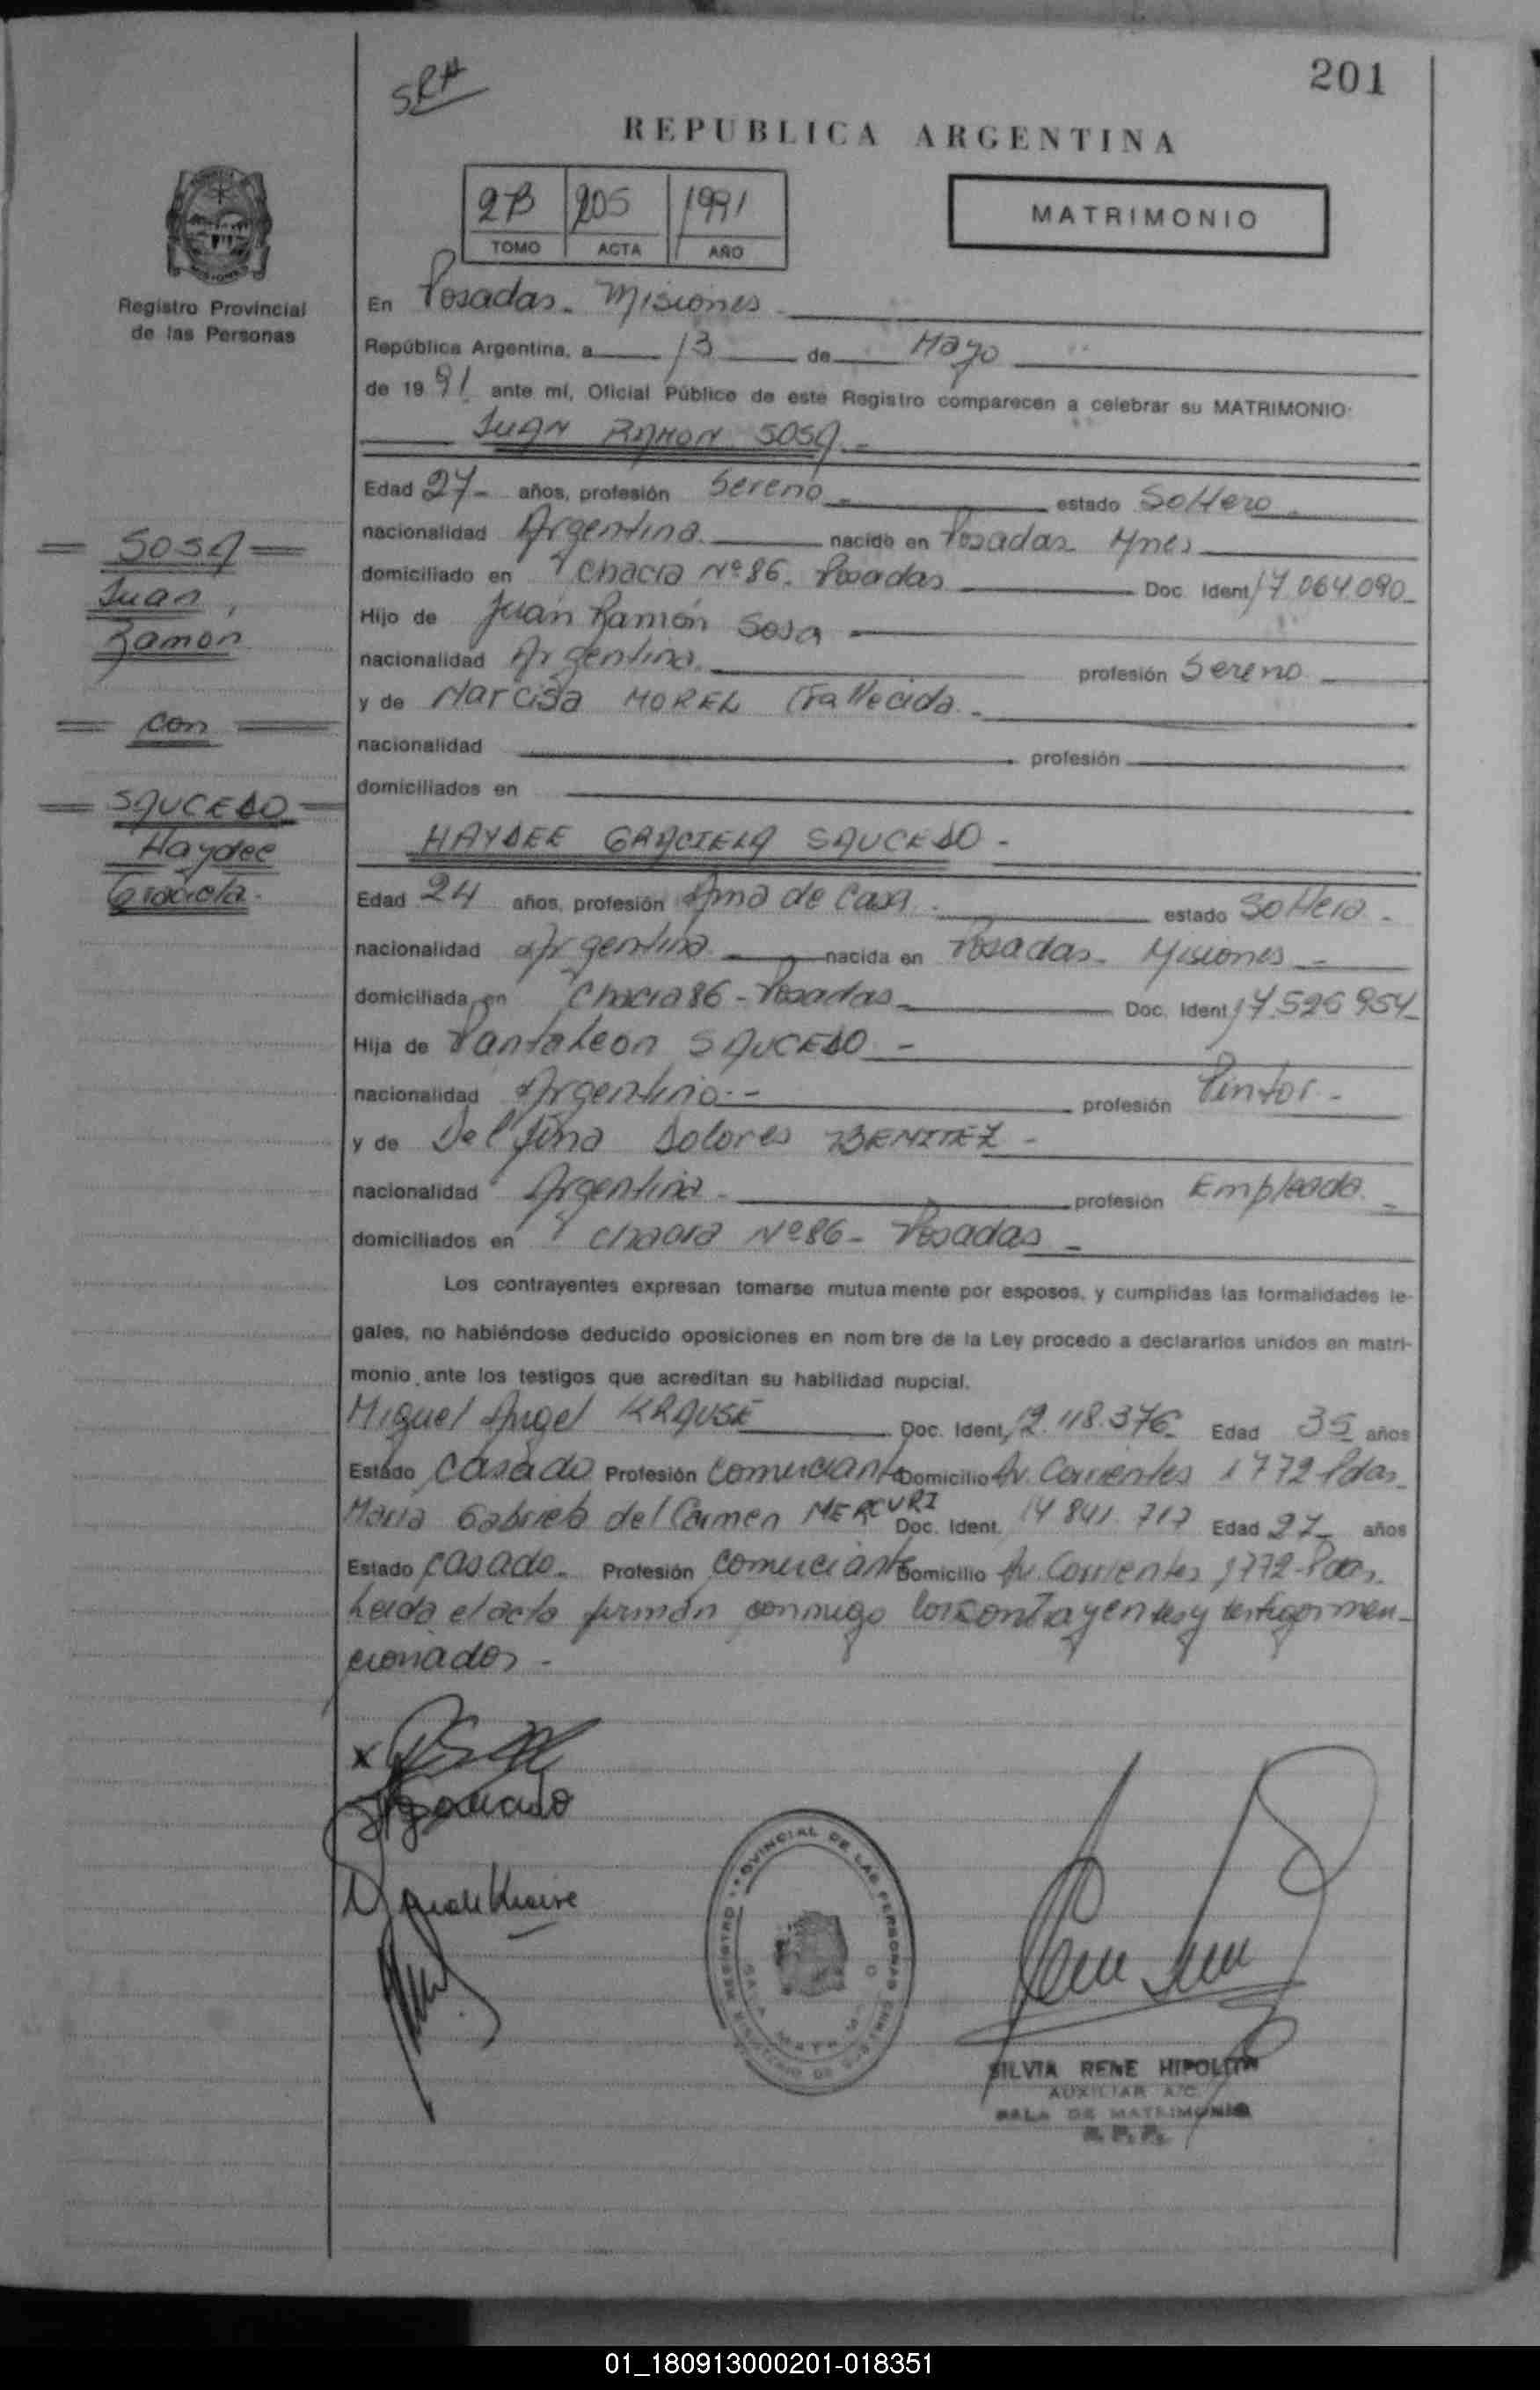 201
SRA
REPUBLICA ARGENTINA
2B 205 1991
TOMO ACTA AÑO
MATRIMONIO
Registro Provincial
de las Personas
En Posadas - Misiones -
República Argentina, a 13 de Mayo
de 1991 ante mí, Oficial Público de este Registro comparecen a celebrar su MATRIMONIO:
JUAN RAMON SOSA -
Edad 27- años, profesión Sereno - estado Soltero -
nacionalidad Argentina. nacido en Posadas Mnes
domiciliado en Chacra Nº 86. Posadas Doc. Ident 17.064.090-
Hijo de Juan Ramón Sosa
nacionalidad Argentina. profesión Sereno
y de Narcisa MOREL (Fallecida. -
nacionalidad profesión
domiciliados en
SOSA
Juan,
Ramon
con
SAUCEDO
Haydee
Graciela-
HAYDEE GRACIELA SAUCEDO -
Edad 24 años, profesión Ama de Casa. estado Soltera -
nacionalidad Argentina. nacida en Posadas - Misiones -
domiciliada en Chacra 86 - Posadas Doc. Ident 17.526.954-
Hija de Pantaleon SAUCEDO -
nacionalidad Argentino.- profesión Pintor -
y de Delfina Dolores BENITEZ -
nacionalidad Argentina - profesión Empleada. -
domiciliados en Chacra Nº 86 - Posadas -
Los contrayentes expresan tomarse mutua mente por esposos, y cumplidas las formalidades le-
gales, no habiéndose deducido oposiciones en nom bre de la Ley procedo a declararlos unidos en matri-
monio ante los testigos que acreditan su habilidad nupcial.
Miguel Angel KRAUSE Doc. Ident. 12.118.376- Edad 35 años
Estado Casado Profesión Comerciante Domicilio Av. Corrientes 1772 Pdas-
Maria Gabriela del Carmen MERCURI Doc. Ident. 14 841.717 Edad 27- años
Estado Casado - Profesión Comerciante Domicilio Av. Corrientes 1772-Pdas.
Leida el acta firman conmigo los contrayentes y testigos men-
cionados -
x
REGISTRO PROVINCIAL DE LAS PERSONAS
SILVIA RENE HIPOLITA
AUXILIAR A/C
SALA DE MATRIMONIO
R. P. P.
01_180913000201-018351